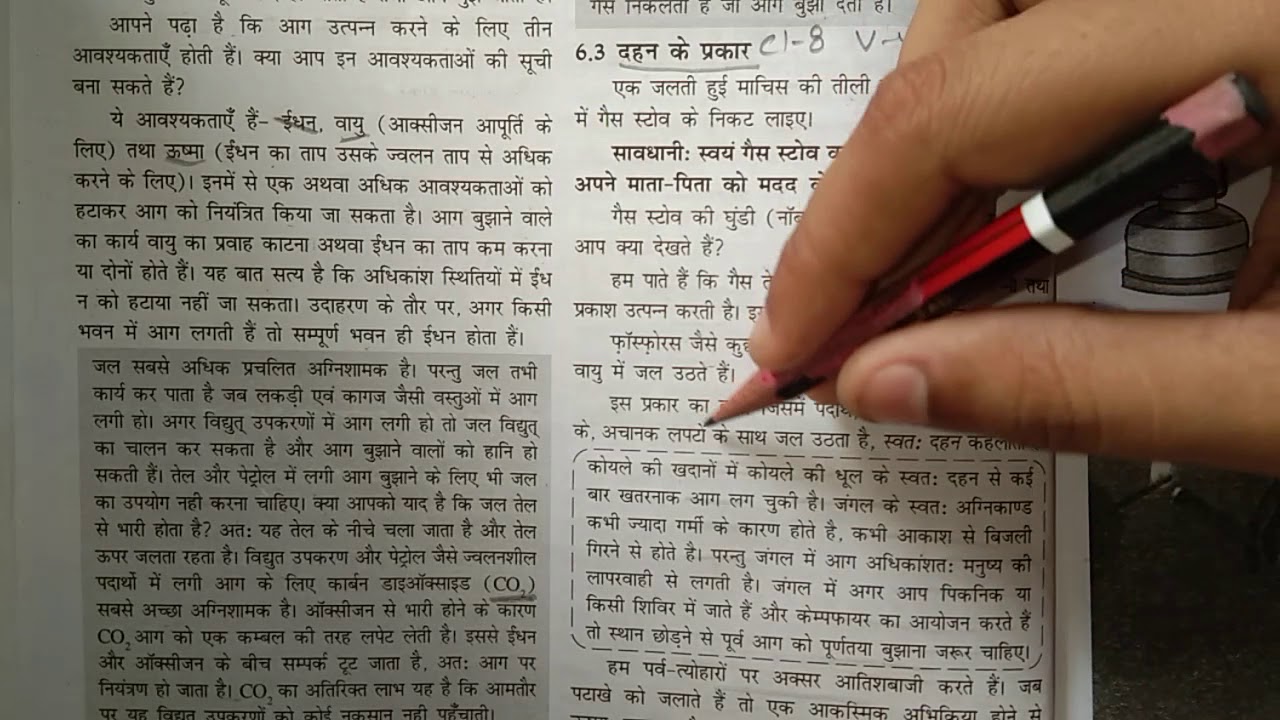 आपने पढ़ा है कि आग उत्पन्न करने के लिए तीन
आवश्यकताएँ होती हैं। क्या आप इन आवश्यकताओं की सूची
बना सकते हैं?
ये आवश्यकताएँ हैं- ईंधन, वायु (आक्सीजन आपूर्ति के
लिए) तथा ऊष्मा (ईंधन का ताप उसके ज्वलन ताप से अधिक
करने के लिए)। इनमें से एक अथवा अधिक आवश्यकताओं को
हटाकर आग को नियंत्रित किया जा सकता है। आग बुझाने वाले
का कार्य वायु का प्रवाह काटना अथवा ईंधन का ताप कम करना
या दोनों होते हैं। यह बात सत्य है कि अधिकांश स्थितियों में ईंध
न को हटाया नहीं जा सकता। उदाहरण के तौर पर, अगर किसी
भवन में आग लगती हैं तो सम्पूर्ण भवन ही ईंधन होता हैं।
जल सबसे अधिक प्रचलित अग्निशामक है। परन्तु जल तभी
कार्य कर पाता है जब लकड़ी एवं कागज जैसी वस्तुओं में आग
लगी हो। अगर विद्युत् उपकरणों में आग लगी हो तो जल विद्युत्
का चालन कर सकता है और आग बुझाने वालों को हानि हो
सकती हैं। तेल और पेट्रोल में लगी आग बुझाने के लिए भी जल
का उपयोग नही करना चाहिए। क्या आपको याद है कि जल तेल
से भारी होता है? अत: यह तेल के नीचे चला जाता है और तेल
ऊपर जलता रहता है। विद्युत उपकरण और पेट्रोल जैसे ज्वलनशील
पदार्थो में लगी आग के लिए कार्बन डाइऑक्साइड (CO₂)
सबसे अच्छा अग्निशामक है। ऑक्सीजन से भारी होने के कारण
CO₂ आग को एक कम्बल की तरह लपेट लेती है। इससे ईंधन
और ऑक्सीजन के बीच सम्पर्क टूट जाता है, अत: आग पर
नियंत्रण हो जाता है। CO₂ का अतिरिक्त लाभ यह है कि आमतौर
पर यह विद्युत उपकरणों को कोई नुकसान नही पहुँचाती।
गैस निकलती है जो आग बुझा देती है।
6.3 दहन के प्रकार Cl-8
एक जलती हुई माचिस की तीली
में गैस स्टोव के निकट लाइए।
सावधानी: स्वयं गैस स्टोव
अपने माता-पिता को मदद
गैस स्टोव की घुंडी
आप क्या देखते हैं?
हम पाते हैं कि गैस
प्रकाश उत्पन्न करती है।
तथा
फ़ॉस्फ़ोरस जैसे
वायु में जल उठते हैं।
इस प्रकार का जिसमें
के, अचानक लपटों के साथ जल उठता है, स्वत: दहन
कोयले की खदानों में कोयले की धूल के स्वत: दहन से कई
बार खतरनाक आग लग चुकी है। जंगल के स्वत: अग्निकाण्ड
कभी ज्यादा गर्मी के कारण होते है, कभी आकाश से बिजली
गिरने से होते है। परन्तु जंगल में आग अधिकांशत: मनुष्य की
लापरवाही से लगती है। जंगल में अगर आप पिकनिक या
किसी शिविर में जाते हैं और केम्पफायर का आयोजन करते हैं
तो स्थान छोड़ने से पूर्व आग को पूर्णतया बुझाना जरूर चाहिए।
हम पर्व-त्योहारों पर अक्सर आतिशबाजी करते हैं। जब
पटाखे को जलाते हैं तो एक आकस्मिक अभिक्रिया होने से